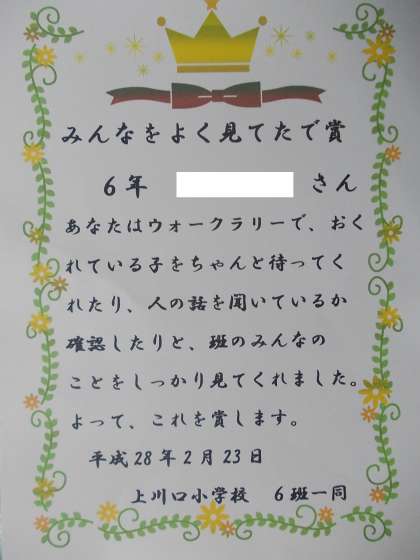 みんなをよく見てたで賞
6年 さん
あなたはウォークラリーで、おく
れている子をちゃんと待ってく
れたり、人の話を聞いているか
確認したりと、班のみんなの
ことをしっかり見てくれました。
よって、これを賞します。
平成28年2月23日
上川口小学校 6班一同